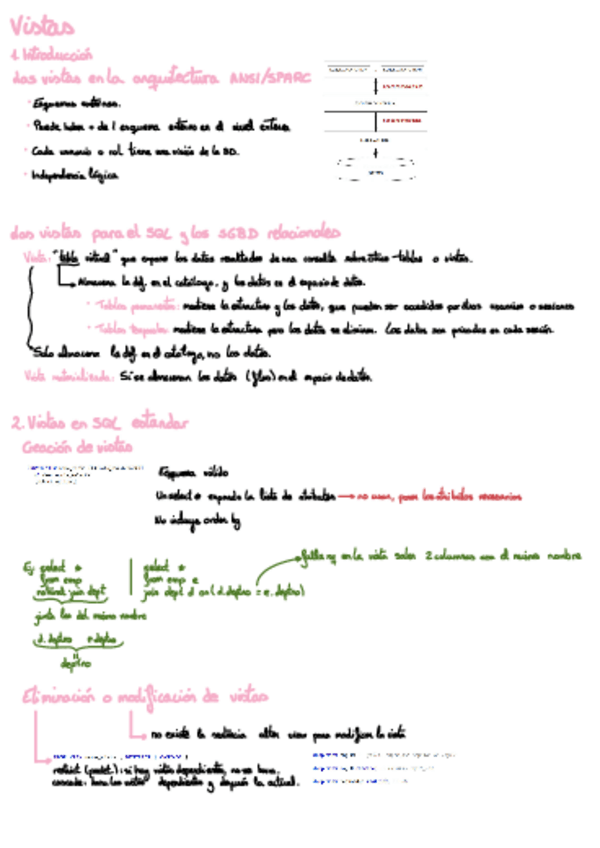 Vistas
1. Introducción
Las vistas en la arquitectura ANSI/SPARC
· Esquemas externos.
· Puede haber + de 1 esquema externo en el nivel externo
· Cada usuario o rol tiene una visión de la BD.
· Independencia lógica
Las vistas para el SQL y los SGBD relacionales
Vista: "tabla virtual" que expone los datos resultados de una consulta sobre otras tablas o vistas.
Almacena la def. en el catálogo, y los datos en el espacio de datos.
· Tablas permanentes: mantiene la estructura y los datos, que pueden ser accedidos por otros usuarios o sesiones
· Tablas temporales: mantiene la estructura pero los datos se eliminan. Los datos son privados en cada sesión.
Solo almacena la def. en el catálogo, no los datos.
Vista materializada: Sí se almacenan los datos (filas) en el espacio de datos.
2. Vistas en SQL estándar
Creación de vistas
Esquema válido
Un select * expande la lista de atributos → no usar, poner los atributos necesarios
No incluye order by
Ej: select *
from emp
natural join dept
junta los del mismo nombre
d.deptno e.deptno
deptno
select *
from emp e
join dept d on (d.deptno = e.deptno)
falla en la vista salen 2 columnas con el mismo nombre
Eliminación o modificación de vistas
no existe la sentencia alter view para modificar la vista
restrict (predet.): si hay vistas dependientes, no se borra.
cascade: borra las vistas dependientes y después la actual.